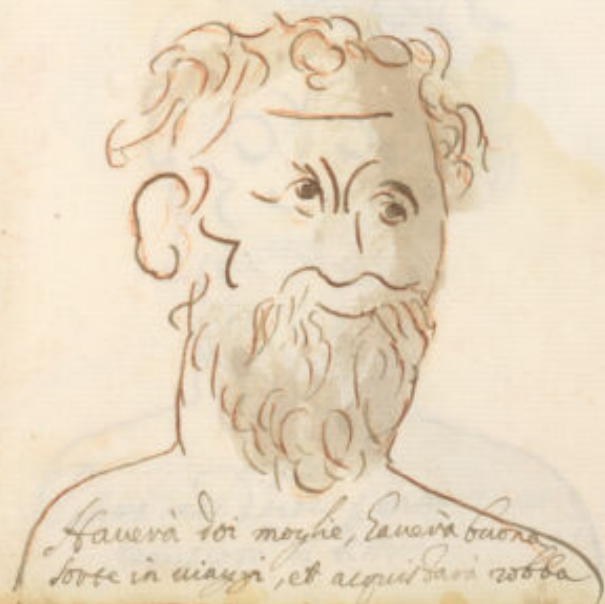 Hauerà doi moglie, hauerà buona
sorte in uiaggi, et acquistarà robba